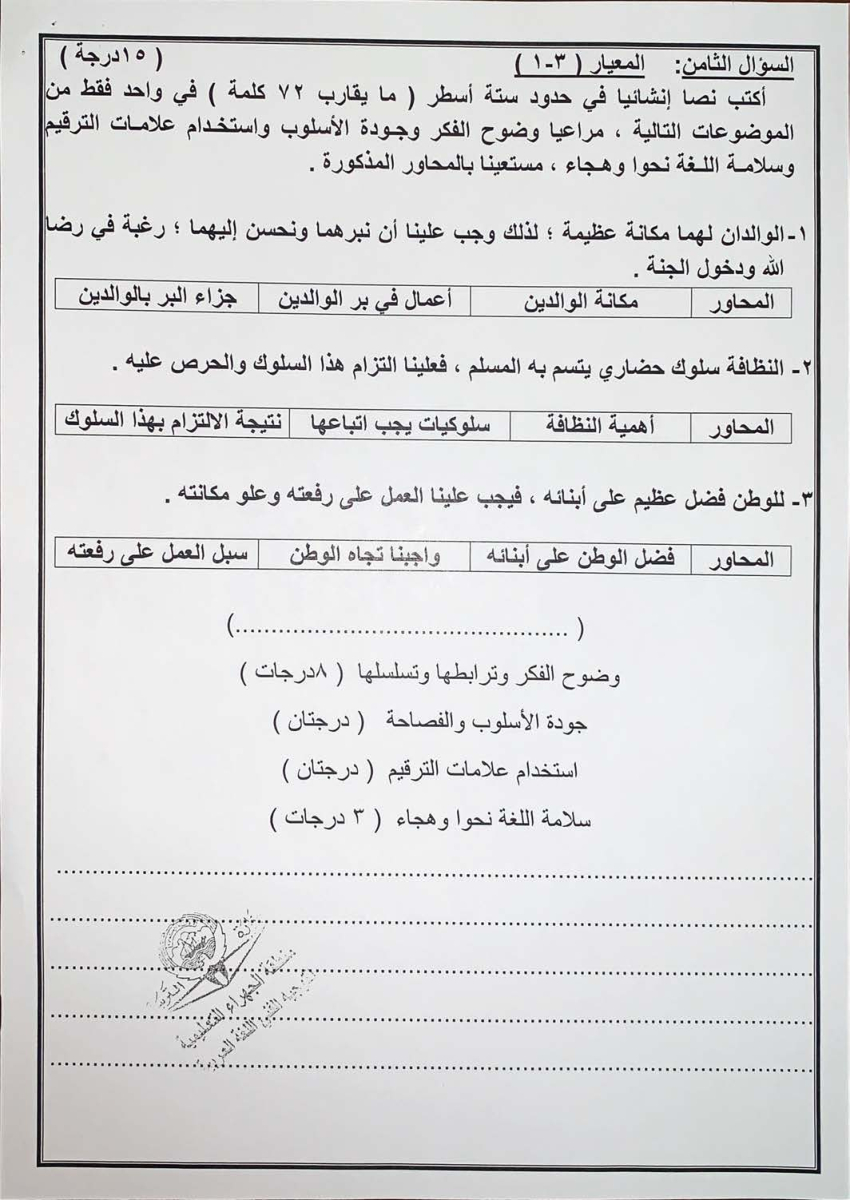 السؤال الثامن: المعيار ( ٣-١ ) ( ١٥درجة )
أكتب نصا إنشائيا في حدود ستة أسطر ( ما يقارب ٧٢ كلمة ) في واحد فقط من
الموضوعات التالية ، مراعيا وضوح الفكر وجودة الأسلوب واستخدام علامات الترقيم
وسلامة اللغة نحوا وهجاء ، مستعينا بالمحاور المذكورة .
١-الوالدان لهما مكانة عظيمة ؛ لذلك وجب علينا أن نبرهما ونحسن إليهما ؛ رغبة في رضا
الله ودخول الجنة .
المحاور مكانة الوالدين أعمال في بر الوالدين جزاء البر بالوالدين
٢- النظافة سلوك حضاري يتسم به المسلم ، فعلينا التزام هذا السلوك والحرص عليه .
المحاور أهمية النظافة سلوكيات يجب اتباعها نتيجة الالتزام بهذا السلوك
٣- للوطن فضل عظيم على أبنائه ، فيجب علينا العمل على رفعته وعلو مكانته .
المحاور فضل الوطن على أبنائه واجبنا تجاه الوطن سبل العمل على رفعته
( ............................................. )
وضوح الفكر وترابطها وتسلسلها ( ٨درجات )
جودة الأسلوب والفصاحة ( درجتان )
استخدام علامات الترقيم ( درجتان )
سلامة اللغة نحوا وهجاء ( ٣ درجات )
منطقة الجهراء التعليمية
التوجيه الفني للغة العربية